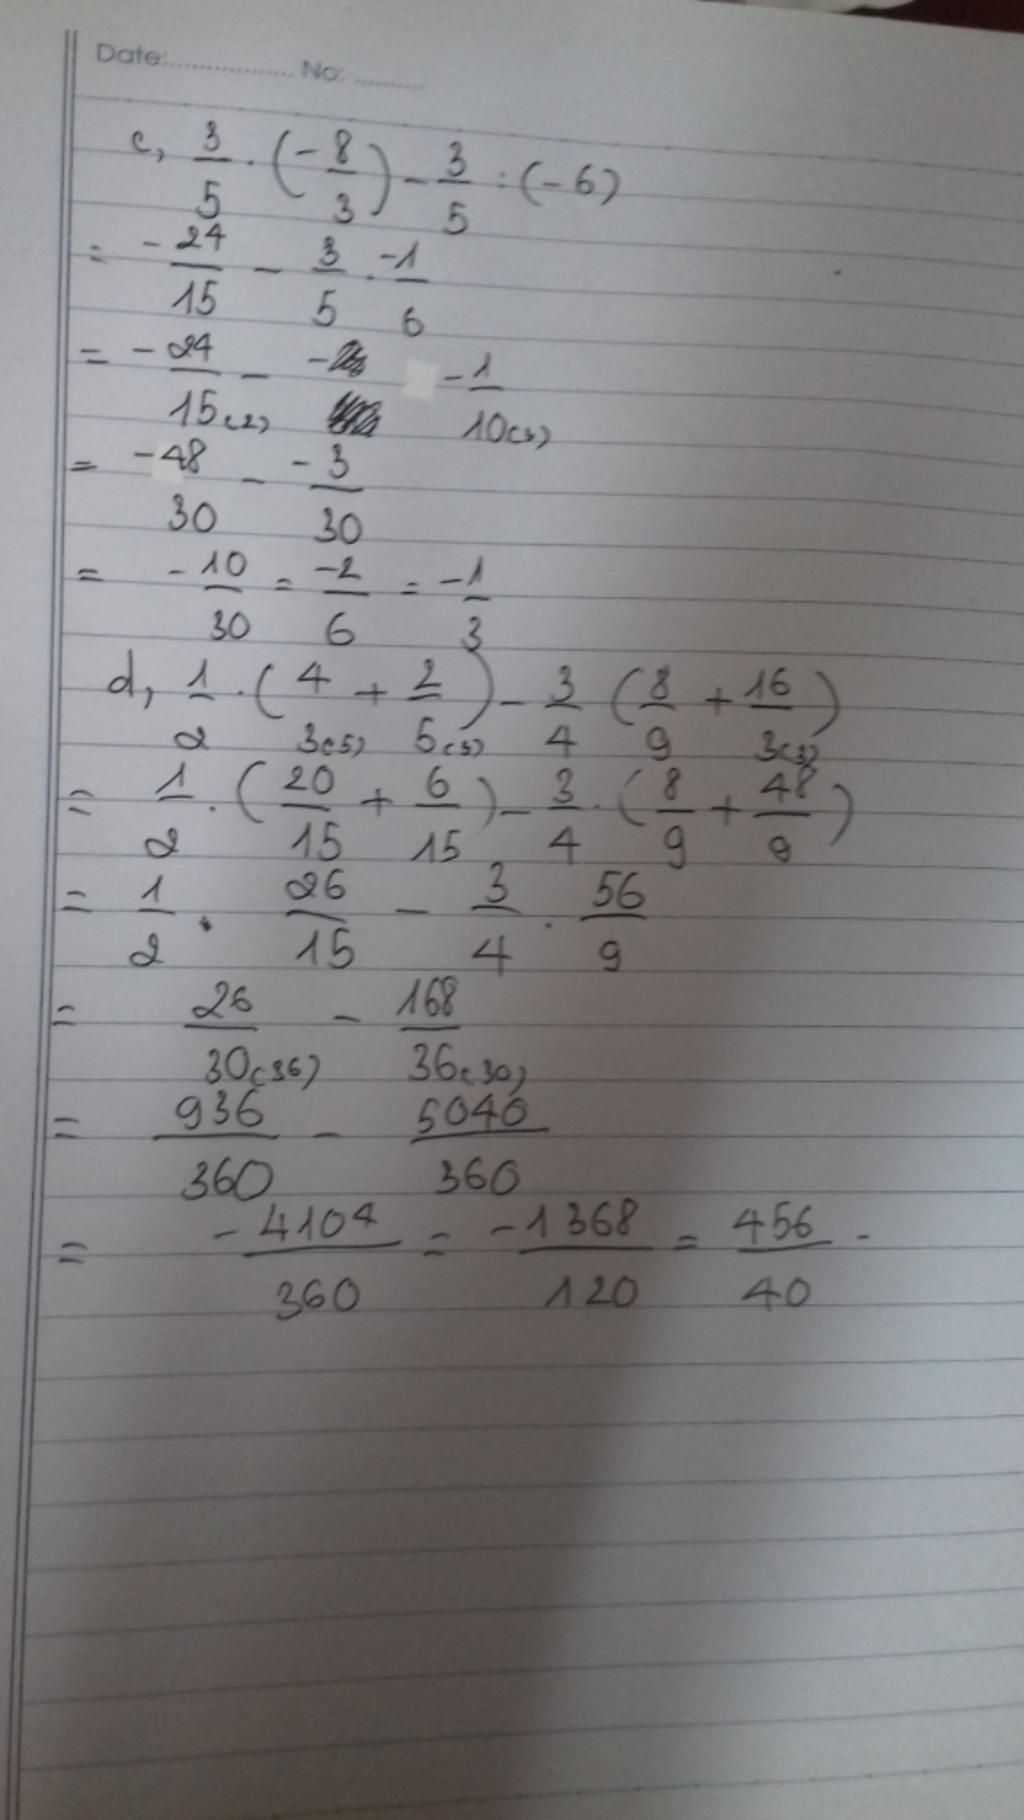 Date:................. No: ..........
c, 3/5 . (-8/3) - 3/5 : (-6)
= -24/15 - 3/5 . -1/6
= -24/15(2) - -1/10(3)
= -48/30 - -3/30
= -10/30 = -2/6 = -1/3
d, 1/2 . (4/3(5) + 2/5(3)) - 3/4 (8/9 + 16/3(3))
= 1/2 . (20/15 + 6/15) - 3/4 . (8/9 + 48/9)
= 1/2 . 26/15 - 3/4 . 56/9
= 26/30(36) - 168/36(30)
= 936/360 - 5040/360
= -4104/360 = -1368/120 = 456/40 -